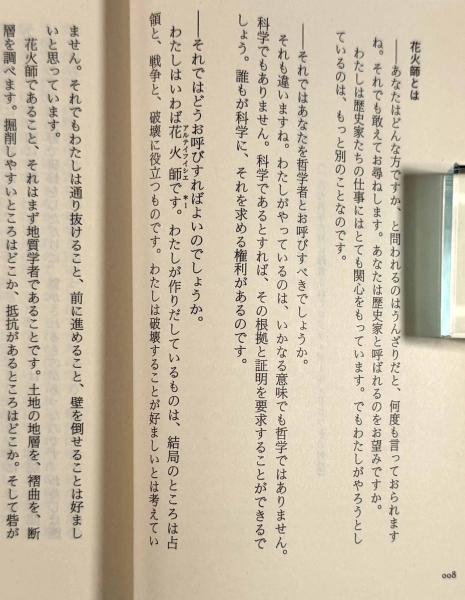 花火師とは
――あなたはどんな方ですか、と問われるのはうんざりだと、何度も言っておられます
ね。それでも敢えてお尋ねします。あなたは歴史家と呼ばれるのをお望みですか。
わたしは歴史家たちの仕事にはとても関心をもっています。でもわたしがやろうとし
ているのは、もっと別のことなのです。
――それではあなたを哲学者とお呼びすべきでしょうか。
それも違いますね。わたしがやっているのは、いかなる意味でも哲学ではありません。
科学でもありません。科学であるとすれば、その根拠と証明を要求することができるで
しょう。誰もが科学に、それを求める権利があるのです。
――それではどうお呼びすればよいのでしょうか。
わたしはいわば花火師です。わたしが作りだしているものは、結局のところは占
アルティフィシエネー
領と、戦争と、破壊に役立つものです。わたしは破壊することが好ましいとは考えてい
ません。それでもわたしは通り抜けること、前に進めること、壁を倒せることは好まし
いと思っています。
花火師であること、それはまず地質学者であることです。土地の地層を、褶曲を、断
層を調べます。掘削しやすいところはどこか、抵抗があるところはどこか。そして砦が
008